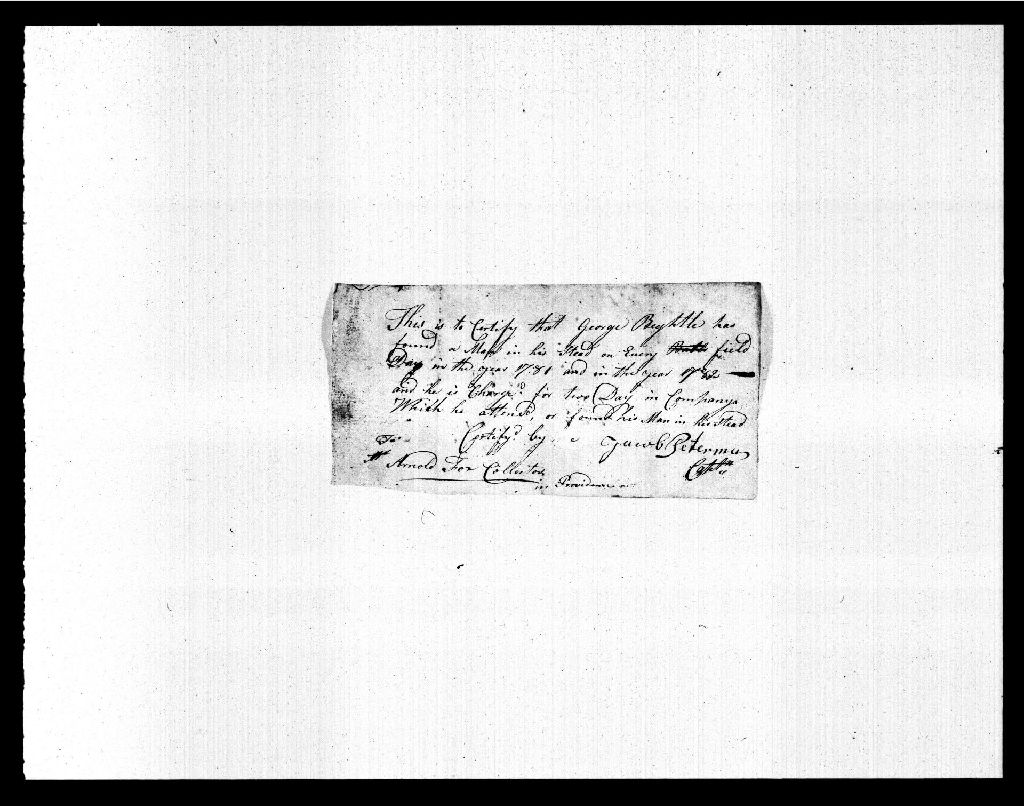 This is to Certify that George Beghtle has
found a Man in his Stead on Every field
Day in the year 1781 and in the year 1782
and he is Charg'd for two Day in Company
Which he attend, or found his Man in his Stead
Certify'd by Jacob Peterman
To Captn
Mr Arnold For Collector
in Providence